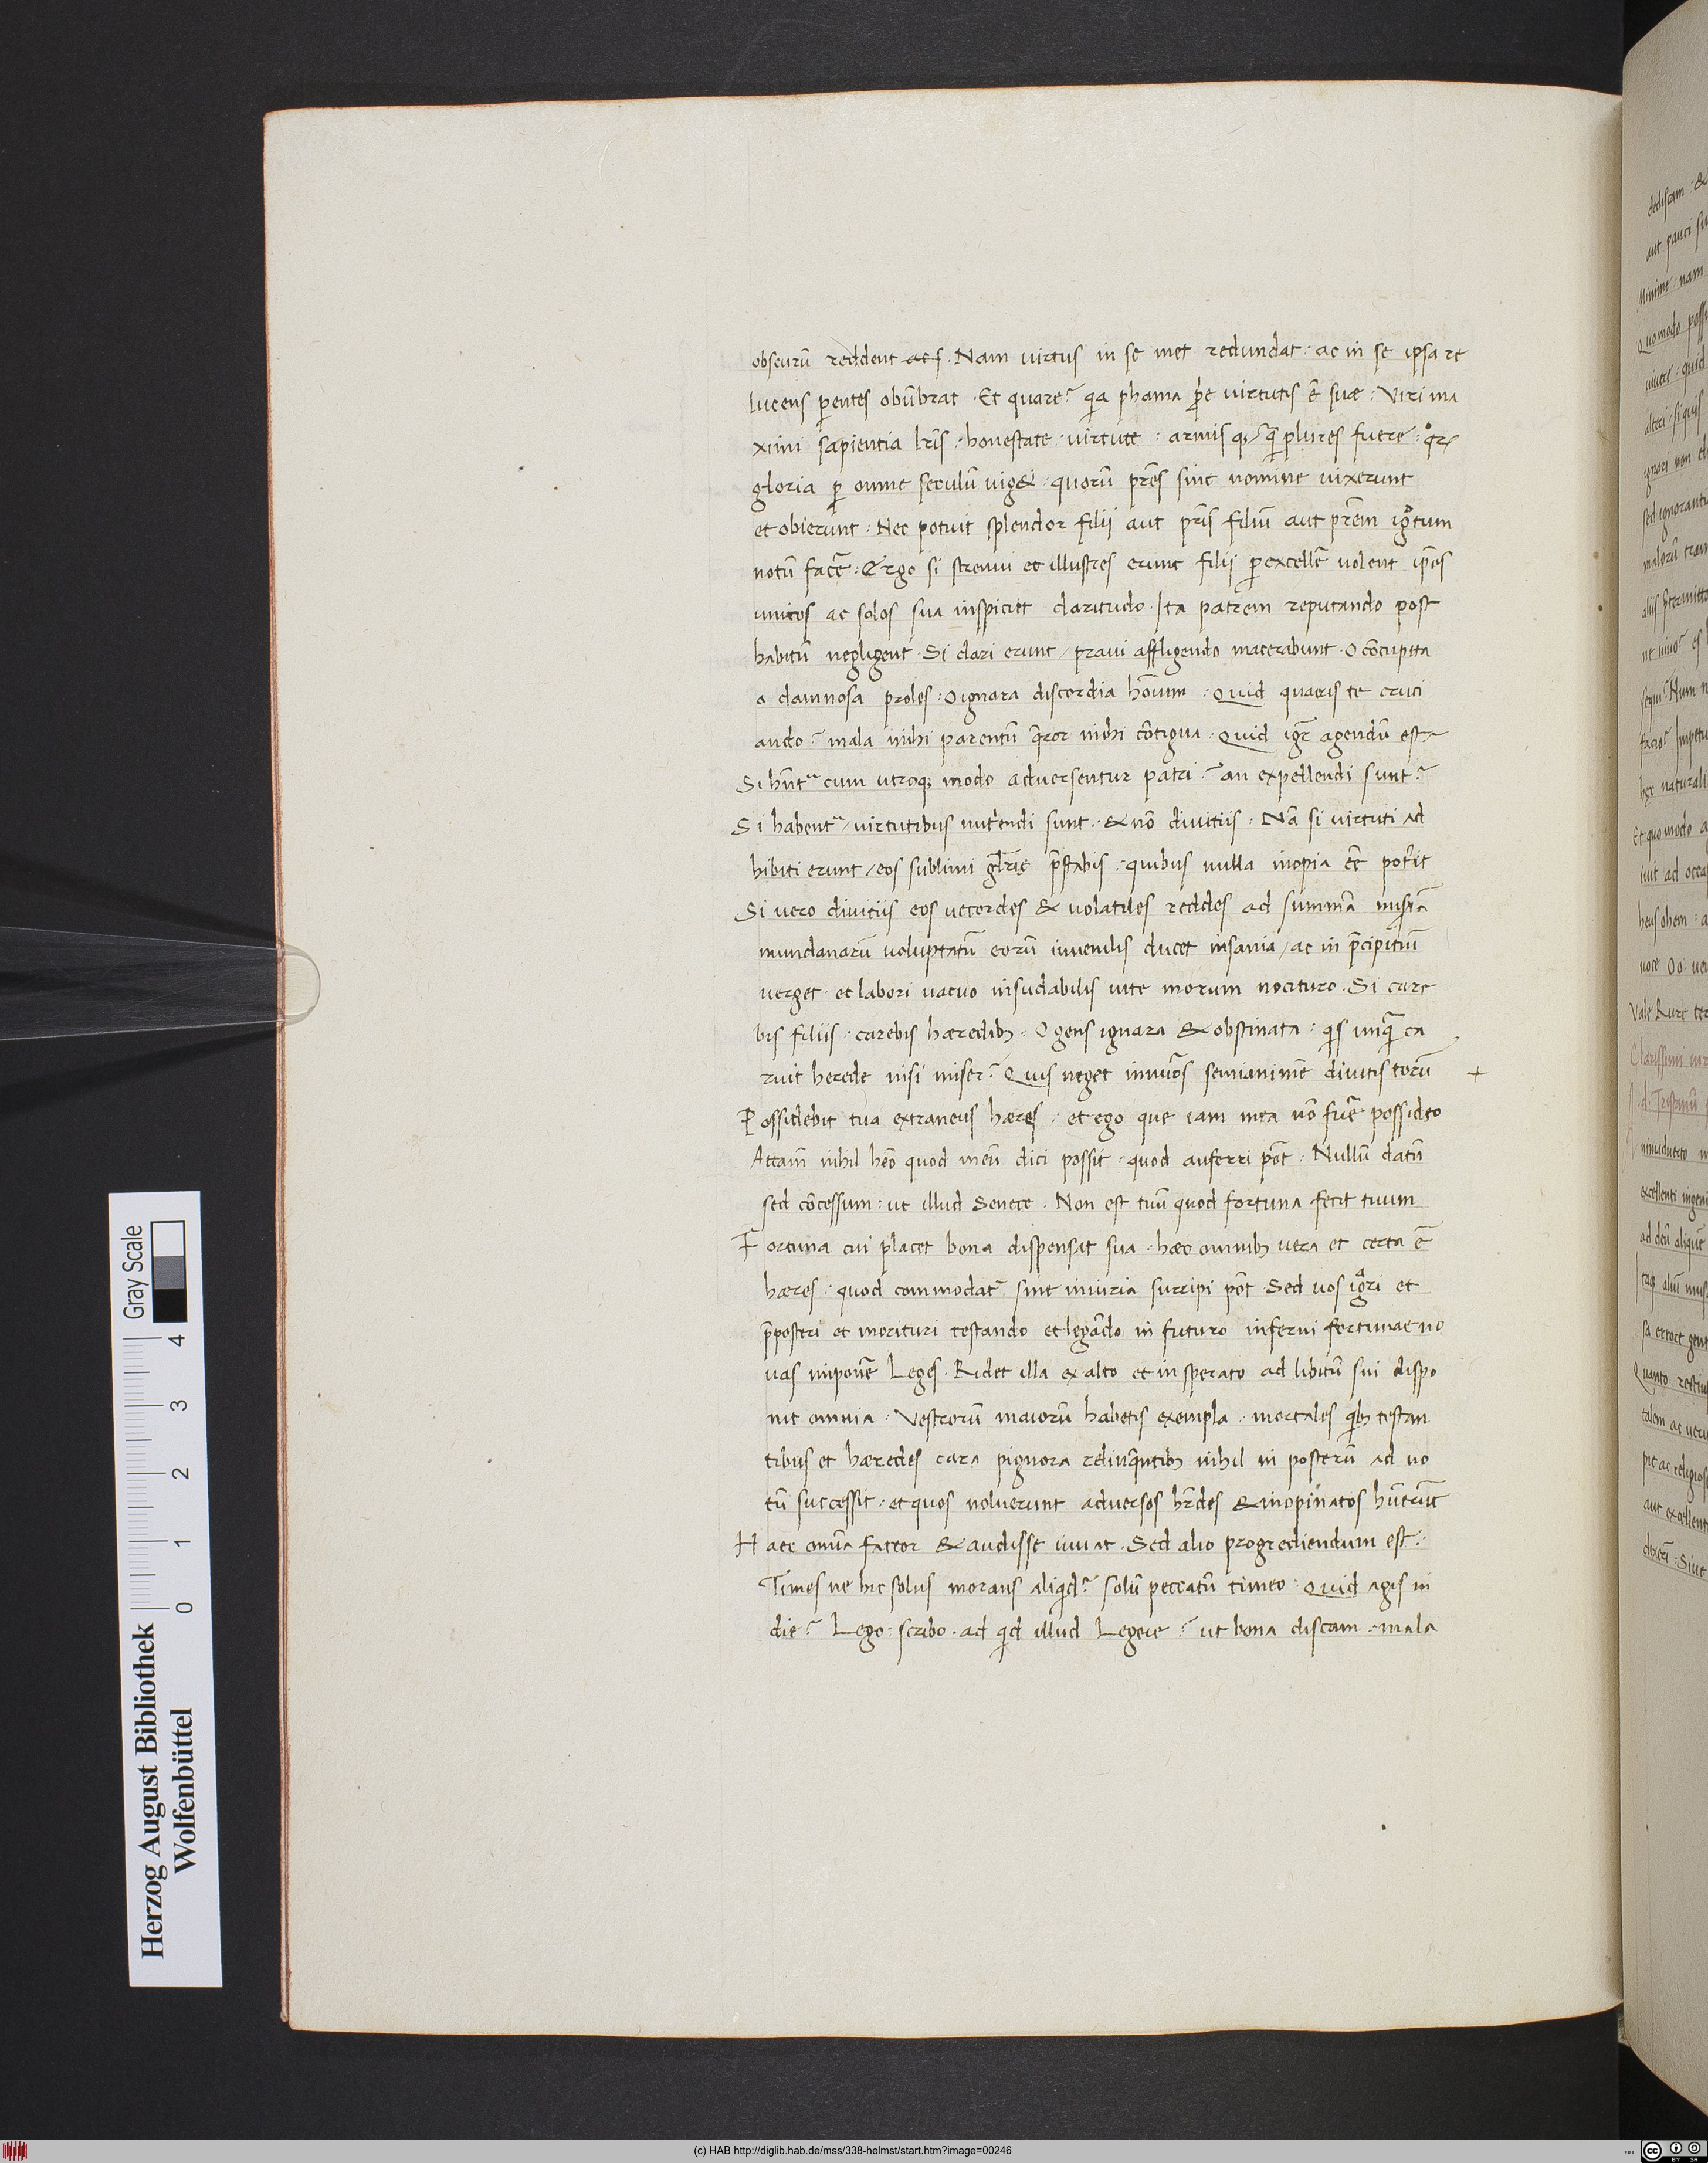 obscurū reddent ac s. Nam virtus in se met redundat: ac in se ipsa re
lucens p̱entes obūbrat. Et quare? q̱a phama p̄te virtutis ē suæ: Viri ma
ximi sapientia lr̄is: honestate: virtute: armisq; plures fuere: qͦꝝ
gloria p̱ omne seculū viget: quorū pr̄es sine nomine vixerunt
et obierunt: Nec potuit splendor filii aut pr̄is filiū aut pr̄em igͦtum
notū facē: Ergo si strenui et illustres erunt filii p̱excellē volent ip̄os
unicos ac solos sua inspiciēt claritudo. Ita patrem reputando post
habitū negligent. Si clari erunt / praui affligendo macerabunt. O cōcupita
o damnosa proles: O ignara discordia hōinum: Quid quaeris te cruci
ando? mala mihi parentū q̄ror mihi cōtigua. Quid igr̄ agendū est?
Si hn̄tʳ cum utroq; modo adversentur patri? an expellendi sunt?
Si habentʳ / virtutibus nutr̄endi sunt: & nō divitiis: Nā si virtuti ad
hibiti erunt / eos sublimi glr̄ię p̄stabis: quibus nulla inopia eē pot̄it
Si vero divitiis eos vecordes & volatiles reddes ad summā mis̄iā
mundanarū voluptatū eorū iuvenilis ducet insania / ac in p̄cipitiū
verget et labori vacuo insudabilis vite morum nocituro. Si care
bis filiis: carebis hæredibꝫ. O gens ignara & obstinata: q̱s unq̄ ca
ruit herede nisi miser? Quis neget semianimē divitis torū +
Possidebit tua extraneus hæres: et ego que iam mea nō fuē possideo
Attam̄ nihil heō quod meū dici possit: quod auferri pōt: Nullū datū
sed cōcessum: ut illud Senece. Non est tuū quod fortuna fecit tuum
Fortuna cui placet bona dispensat sua: hæc omnibꝫ vera et certa ē
hæres: quod commodatʳ sine iniuria surripi pōt. Sed vos igͣri et
p̄posteri et morituri testando et legādo in futuro infermi fortunae no
vas imponē Leges. Ridet illa ex alto et insperato ad libitū sui dispo
nit omnia. Vestrorū maiorū habetis exempla: mortales q̱bꝫ testan
tibus et hæredes cara pignora relinq̄ntibꝫ nihil in posterū ad vo
tū successit: et quos noluerunt adversos hr̄des & inopinatos hūerūt
Haec om̄ia fateor & audisse iuvat. Sed alio progrediendum est:
Times ne hic solus morans aliq̱d? solū peccatū timeo: Quid agis in
die? Lego: scribo. ad q̱d illud Legere? ut bona discam: mala
Herzog August Bibliothek
Wolfenbüttel
0 1 2 3 4
Gray Scale
(c) HAB http://diglib.hab.de/mss/338-helmst/start.htm?image=00246